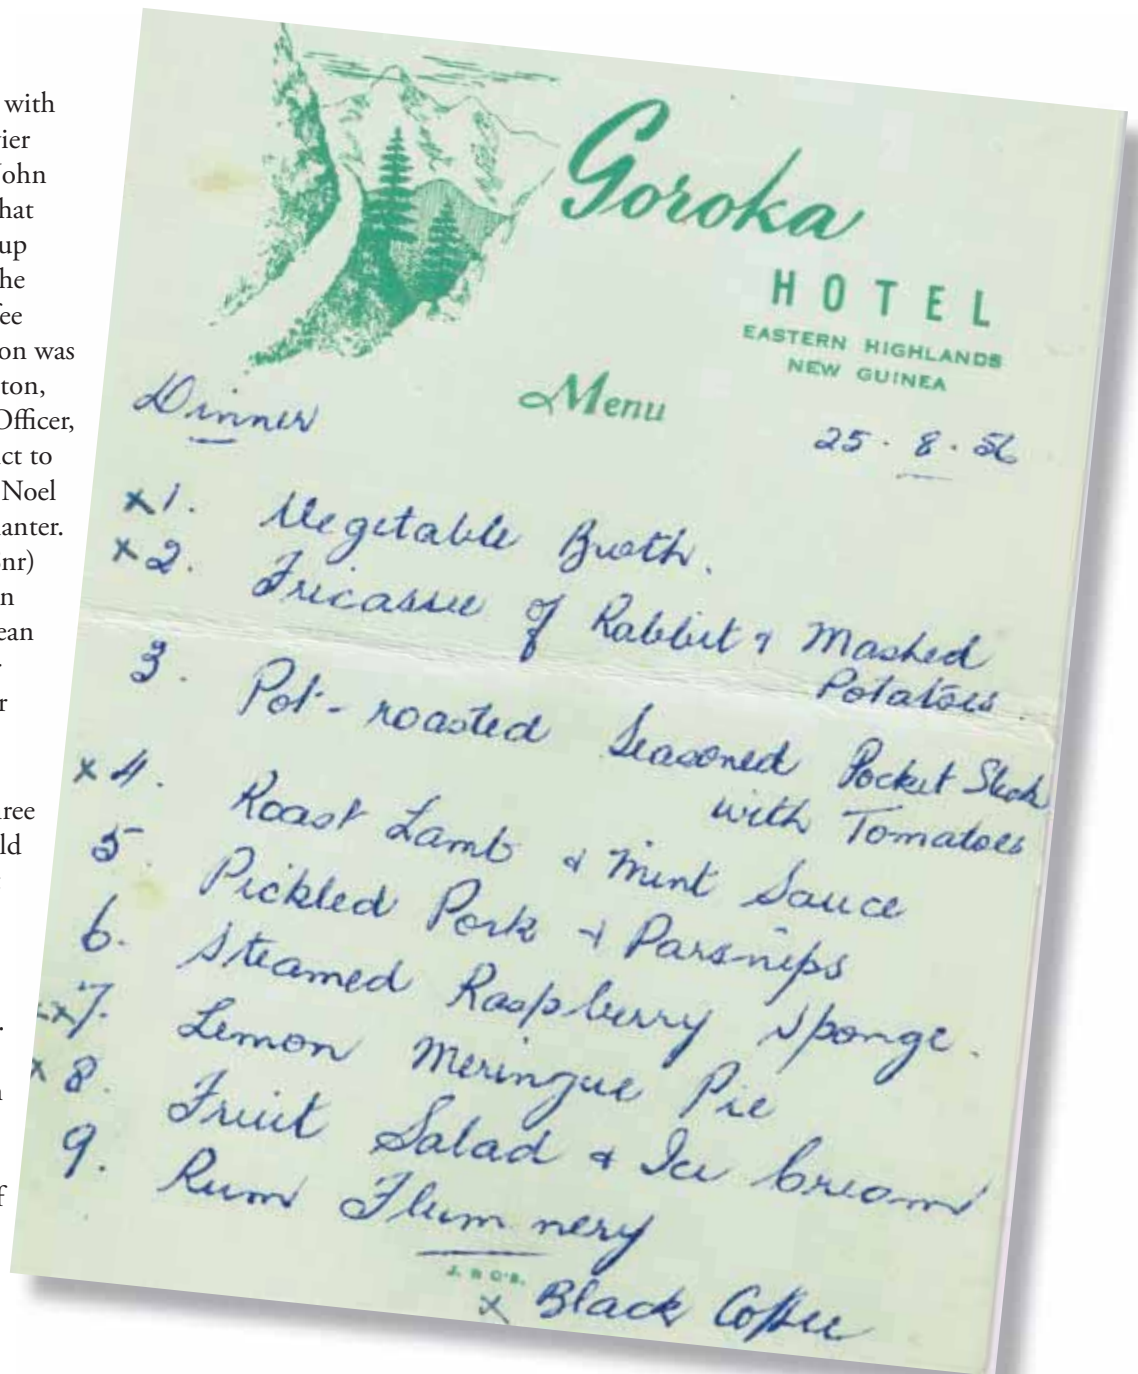 with
ier
ohn
hat
up
he
fee
on was
ton,
Officer,
ct to
Noel
anter.
nr)
n
ean
r
ree
ld
.
n
f
Goroka
HOTEL
EASTERN HIGHLANDS
NEW GUINEA
Menu
Dinner
25 . 8 . 56
x 1. Vegetable Broth.
x 2. Fricassee of Rabbit & Mashed
Potatoes.
3. Pot-roasted Seasoned Pocket Steak
with Tomatoes
x 4. Roast Lamb & Mint Sauce
5. Pickled Pork & Parsnips
6. Steamed Raspberry Sponge.
xx 7. Lemon Meringue Pie
x 8. Fruit Salad & Ice Cream
9. Rum Flummery
x Black Coffee